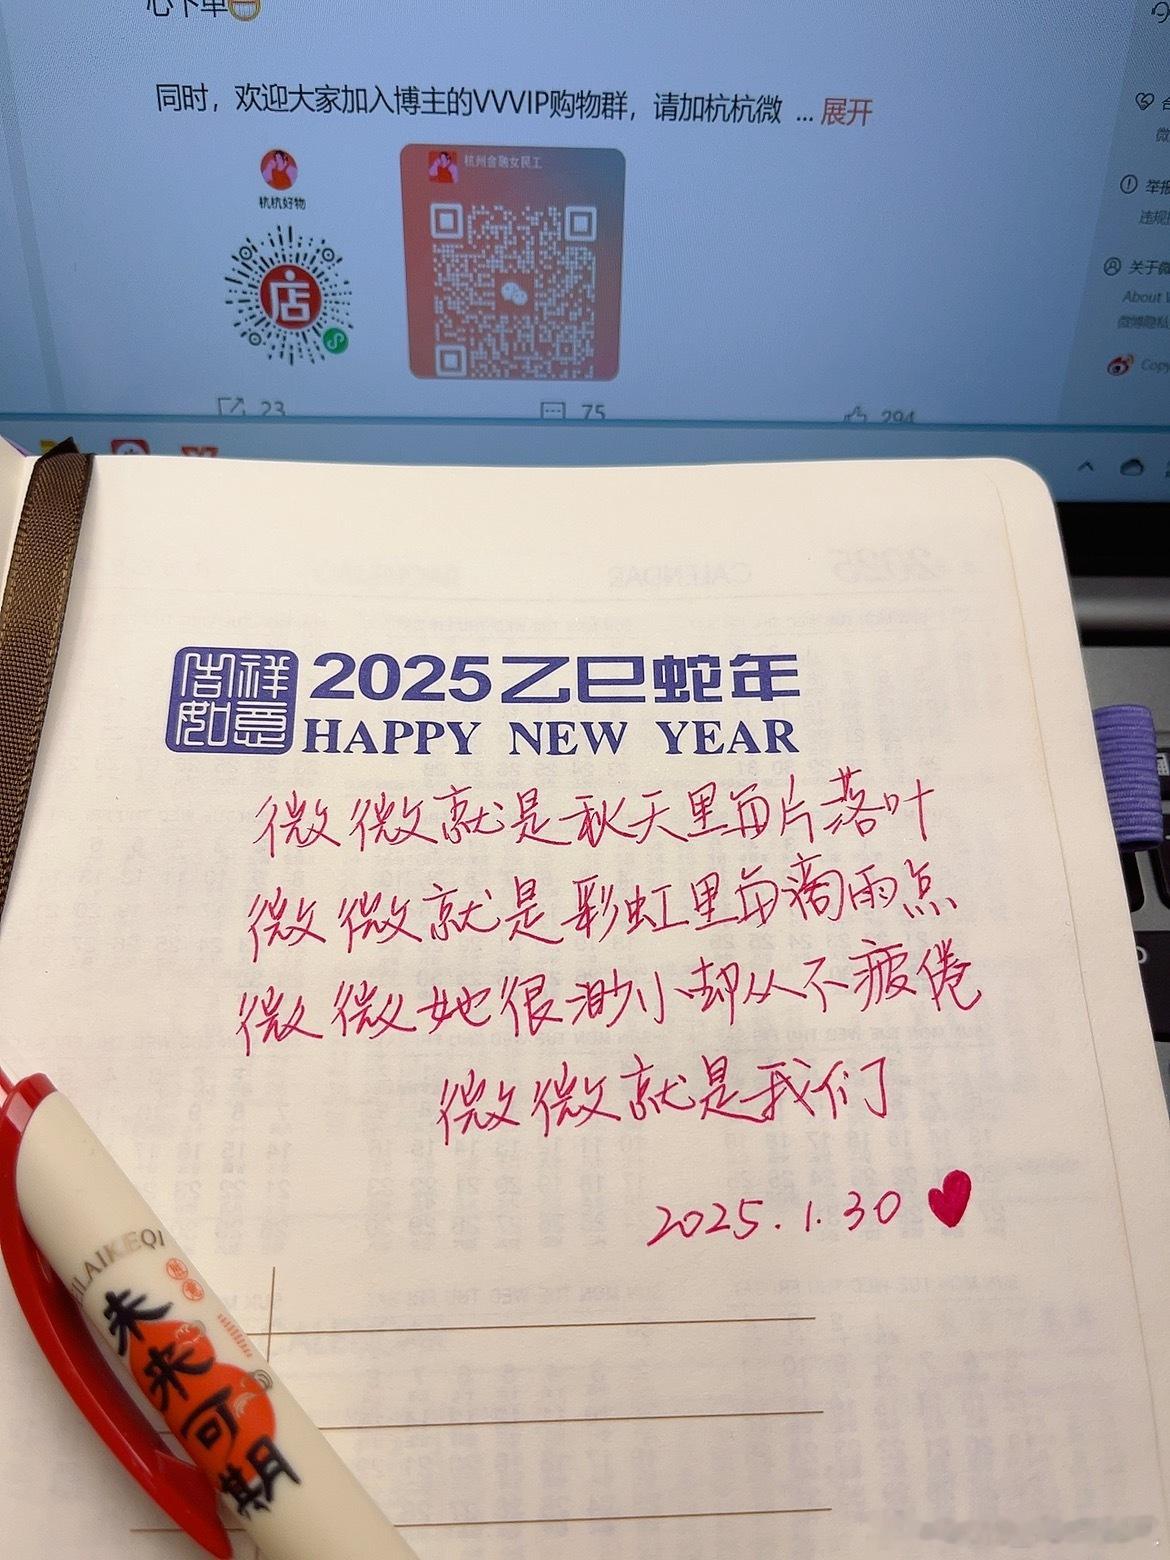 心下单
同时，欢迎大家加入博主的VVVIP购物群，请加杭杭微 ... 展开
杭杭好物
杭州金融女民工
店
举报
违规
关于微
About W
微博隐私
Copy
23
75
294
2025
CALENDAR
吉祥如意
2025乙巳蛇年
HAPPY NEW YEAR
微微就是秋天里每片落叶
微微就是彩虹里每滴雨点
微微她很渺小却从不疲倦
微微就是我们
2025.1.30
ILAIKEQI
未来可期